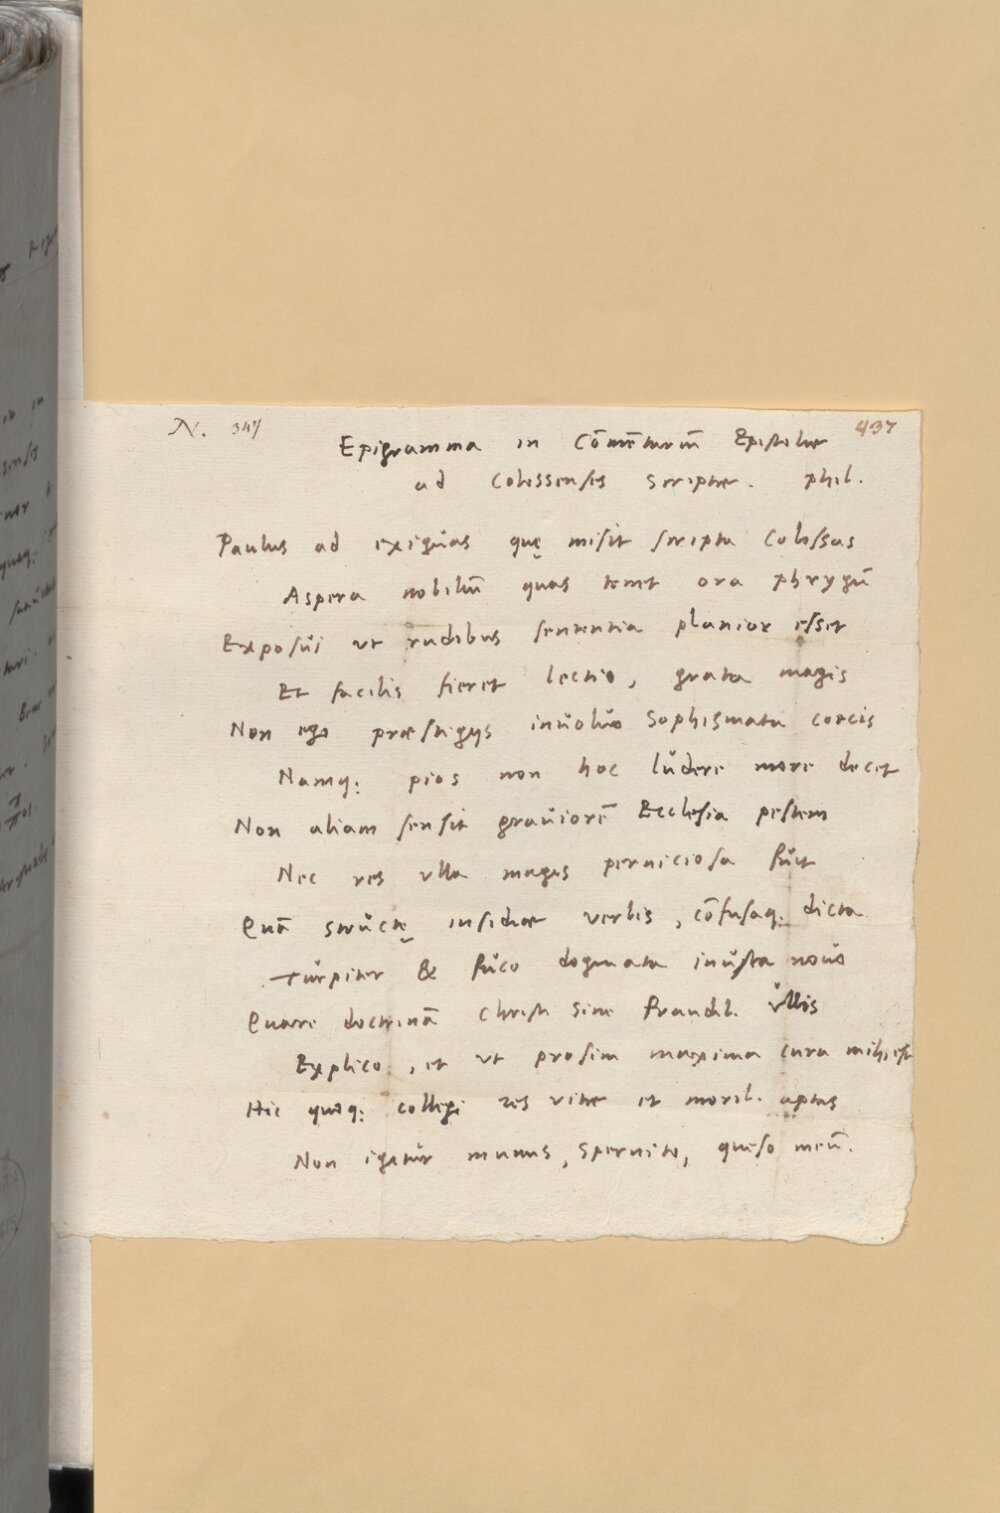 N. 347
437
Epigramma in Cōmētariū Epistolae
ad Colossenses scriptae. Phil.
Paulus ad exiguas quę misit scripta Colossas
Aspera nobiliū quas tenet ora Phrygū
Exposui ut rudibus sententia planior esset
Et facilis fieret lectio, grata magis
Non ego praestigijs inuoluo sophismata coecis
Namq: pios non hoc ludere more decet
Non aliam sensit grauiorē Ecclesia pestem
Nec res ulla magis perniciosa fuit
Quā structę insidiae verbis, cōfusaq: dicta
Turpiter & fuco dogmata inusta nouo
Quare doctrinā Christi sine fraudib. ullis
Explico, et ut prosim maxima cura mihi est
Hic quoq: collegi res vitae et morib. aptas
Non igitur munus, spernito, queso meū.